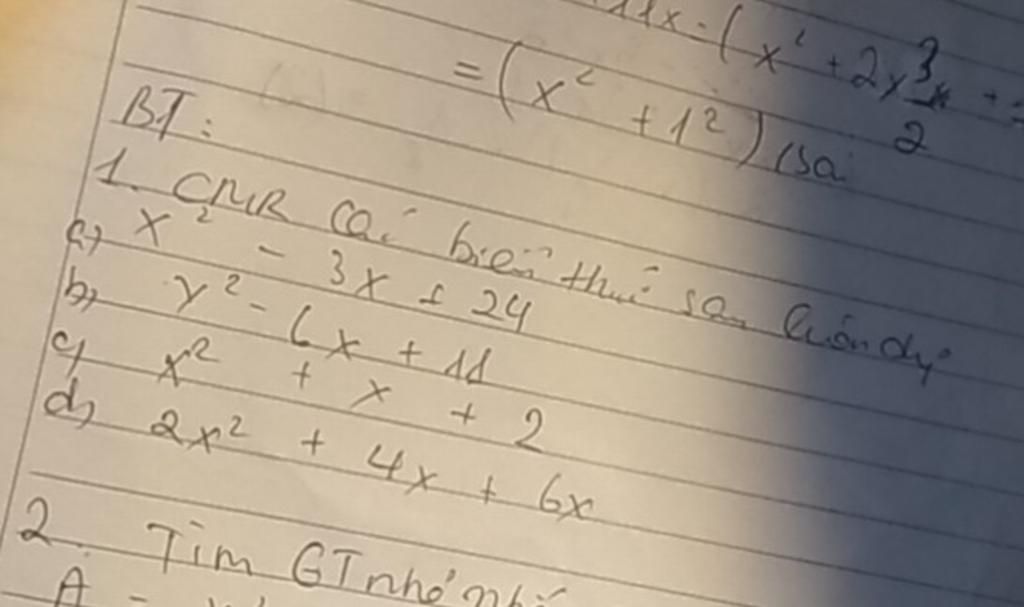 11x = (x² + 2x 3/2
= (x² + 1²) (sai
BT:
1. CMR các biểu thức sau luôn dư
a) x² - 3x + 24
b) y² - 6x + 11
c) x² + x + 2
d) 2x² + 4x + 6x
2. Tìm GT nhỏ nhấ
A =